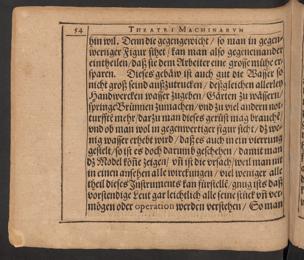 54 THEATRI MACHINARVM
hin wil. Denn die gegengewicht / so man in gegen-
wertiger Figur sihet / kan man also gegeneinander
eintheilen / daß sie dem Arbeiter eine grosse mühe er-
sparen. Dieses gebäw ist auch gut die Wasser so
nicht groß seind außzutrucken / deßgleichen allerley
Handwercken wasser zugeben / Gärten zu wässern /
springeBrünnen zumachen / vnd zu viel andern not-
turfft mehr / darzu man dieses gerüst mag brauchē /
vnd ob man wol in gegenwertiger figur siht / dz we-
nig wasser erhebt wird / daß es auch in ein vierung
gestelt / so ist es doch darumb geschehen / damit man
dz Model köñe zeigen / vñ ist die vrsach / weil man nit
in einen ansehen alle wirckungen / viel weniger alle
theil dieses Instruments kan fürstellē / gnug ists daß
vorstendige Leut gar leichtlich alle seine stück vñ ver-
mögen oder operation werden verstehen / So man